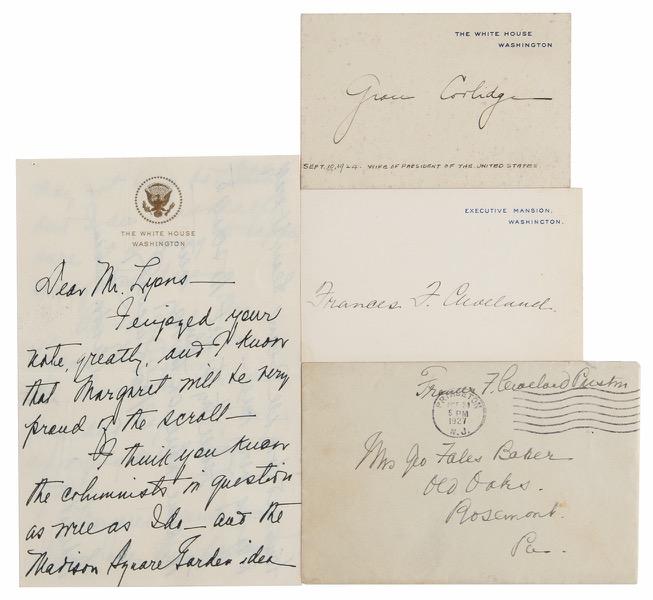 THE WHITE HOUSE
WASHINGTON
Dear Mr. Lyons—
I enjoyed your
note, greatly, and I know
that Margaret will be very
proud of the scroll—
I think you know
the columnists in question
as well as I do— and the
Madison Square Garden idea
THE WHITE HOUSE
WASHINGTON
Grace Coolidge
SEPT. 10, 1924. WIFE OF PRESIDENT OF THE UNITED STATES.
EXECUTIVE MANSION,
WASHINGTON.
Frances F. Cleveland.
Frances F. Cleveland Preston
PRINCETON
5 PM
1927
N.J.
Mrs Geo Fales Baker
Old Oaks.
Rosemont.
Pa.